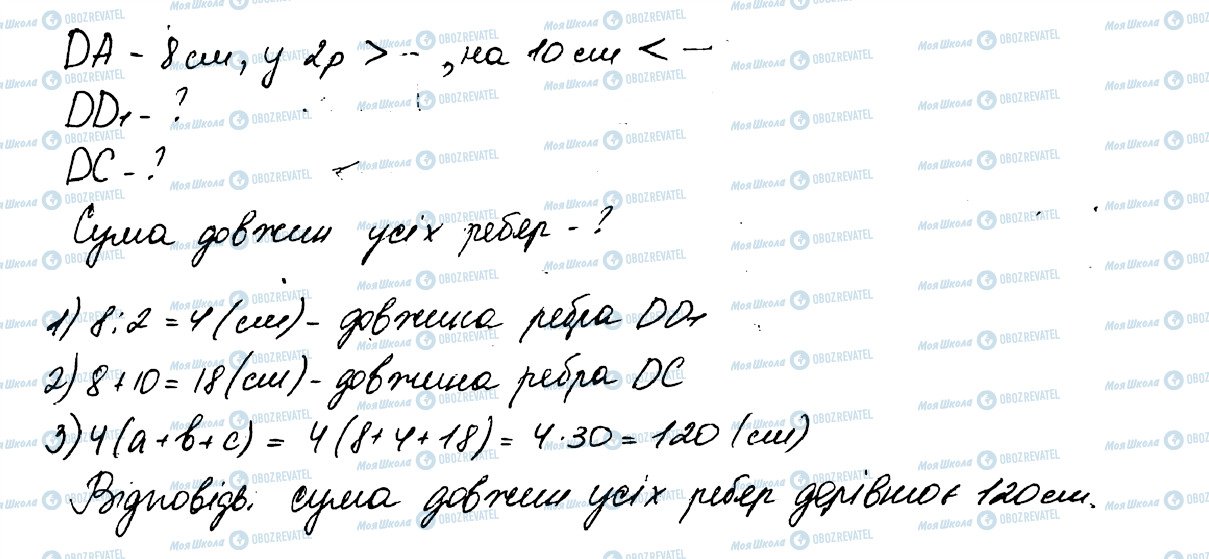 DA - 8 см, у 2р > --, на 10 см < —
DD₁ - ?
DC - ?
Сума довжин усіх ребер - ?
1) 8 : 2 = 4 (см) - довжина ребра DD₁
2) 8 + 10 = 18 (см) - довжина ребра DC
3) 4(a + b + c) = 4(8 + 4 + 18) = 4 · 30 = 120 (см)
Відповідь: сума довжин усіх ребер дорівнює 120 см.